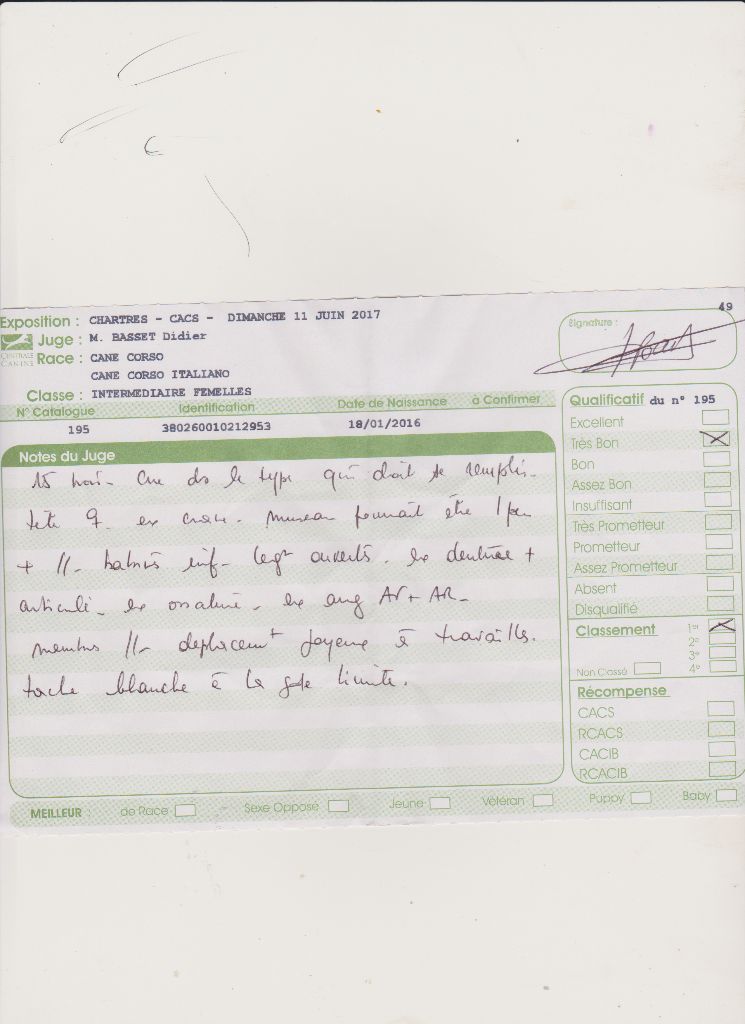 49
Exposition : CHARTRES - CACS - DIMANCHE 11 JUIN 2017
Signature :
CENTRALE CANINE
Juge : M. BASSET Didier
Race : CANE CORSO
CANE CORSO ITALIANO
Classe : INTERMEDIAIRE FEMELLES
N° Catalogue Identification Date de Naissance à Confirmer
195 380260010212953 18/01/2016
Notes du Juge
15 moi - ds le type qui doit se remplir -
tete ex crane - museau pourrait être 1 peu
+ // - babines inf - legt ouverts. ex denture +
articulé - ex ossature - ex ang AV + AR -
membres // - deplacemt moyenne à travailler.
tache blanche à la limite.
Qualificatif du n° 195
Excellent
Très Bon X
Bon
Assez Bon
Insuffisant
Très Prometteur
Prometteur
Assez Prometteur
Absent
Disqualifié
Classement 1er X
2°
3°
Non Classé 4°
Récompense
CACS
RCACS
CACIB
RCACIB
MEILLEUR : de Race - Sexe Opposé Jeune Vétéran Puppy Baby